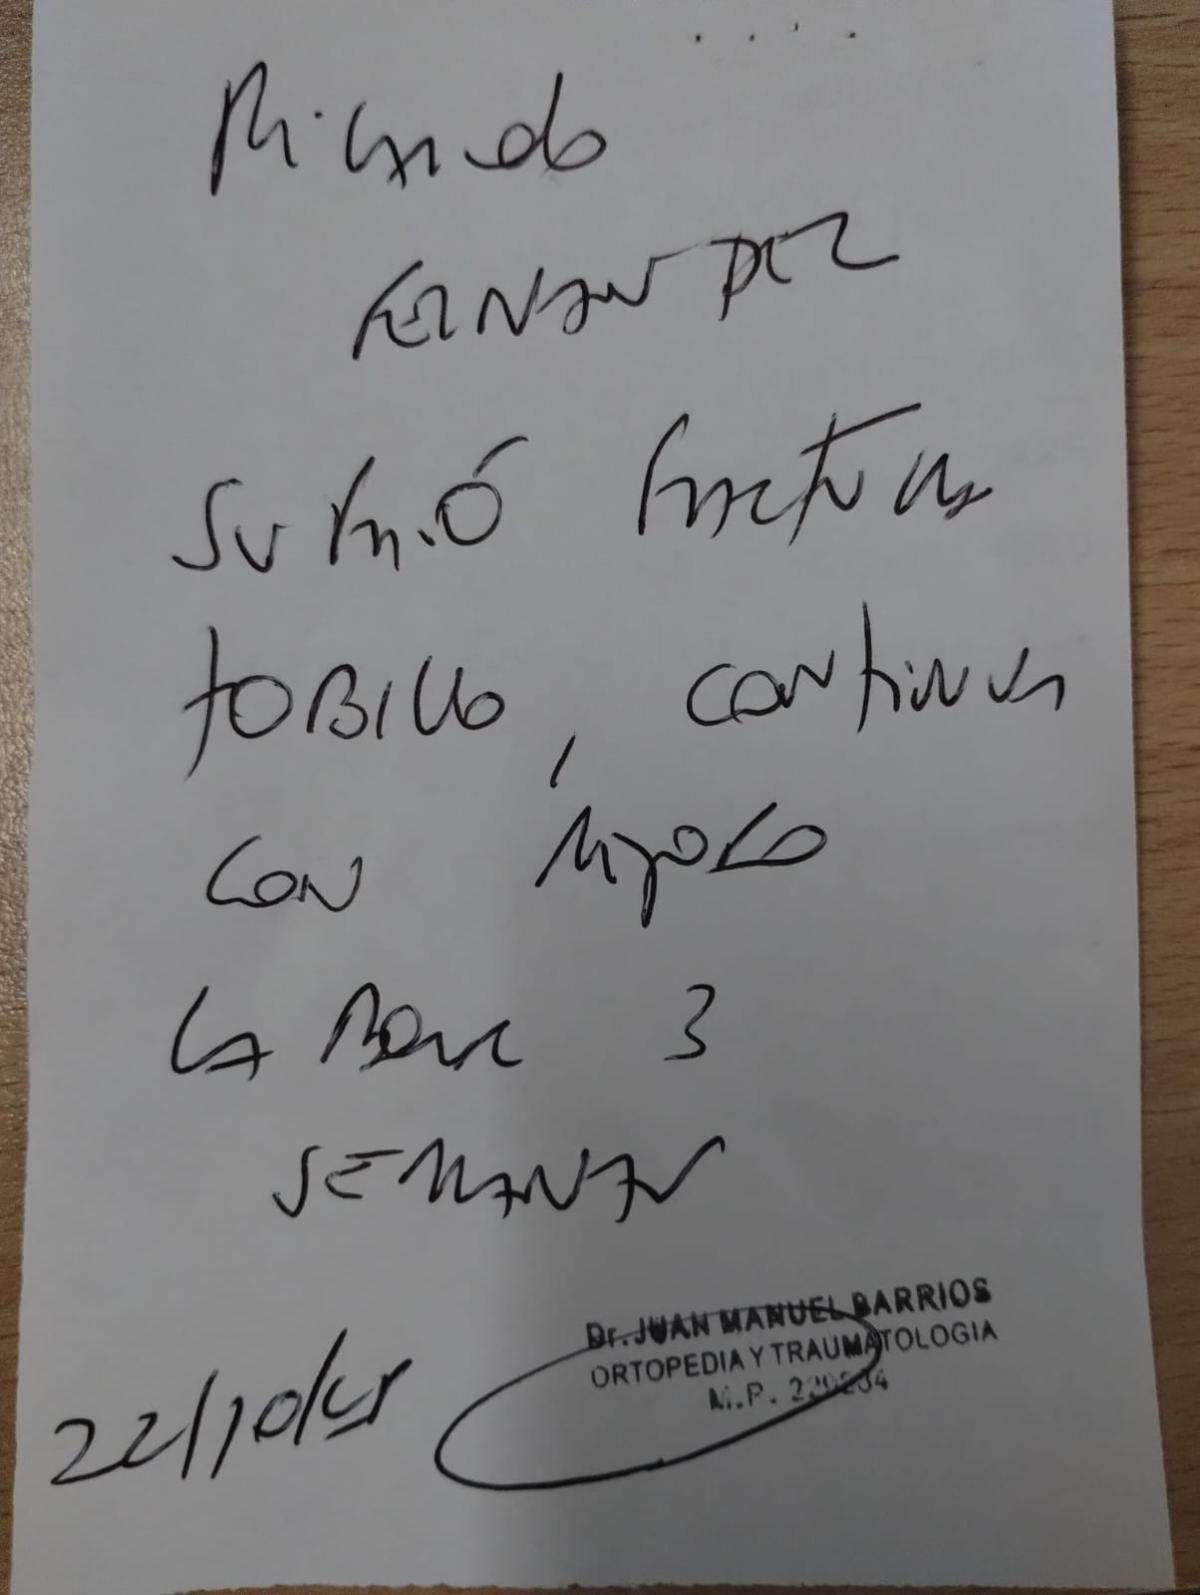 Ricardo
FERNANDEZ
SUFRIÓ fractura
TOBILLO, continua
CON reposo
LABORAL 3
SEMANAS
Dr. JUAN MANUEL BARRIOS
ORTOPEDIA Y TRAUMATOLOGIA
M.P.
22/10/25